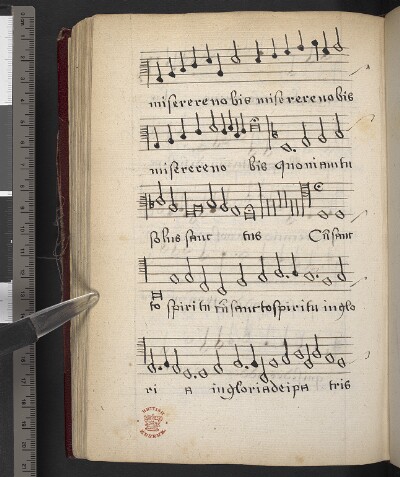 miserere nobis miserere nobis
miserere no bis Quoniam tu
solus sanc tus Cū sanc
to spiritu cū sancto spiritu in glo
ri a in gloria dei pa tris
BRITISH MUSEUM